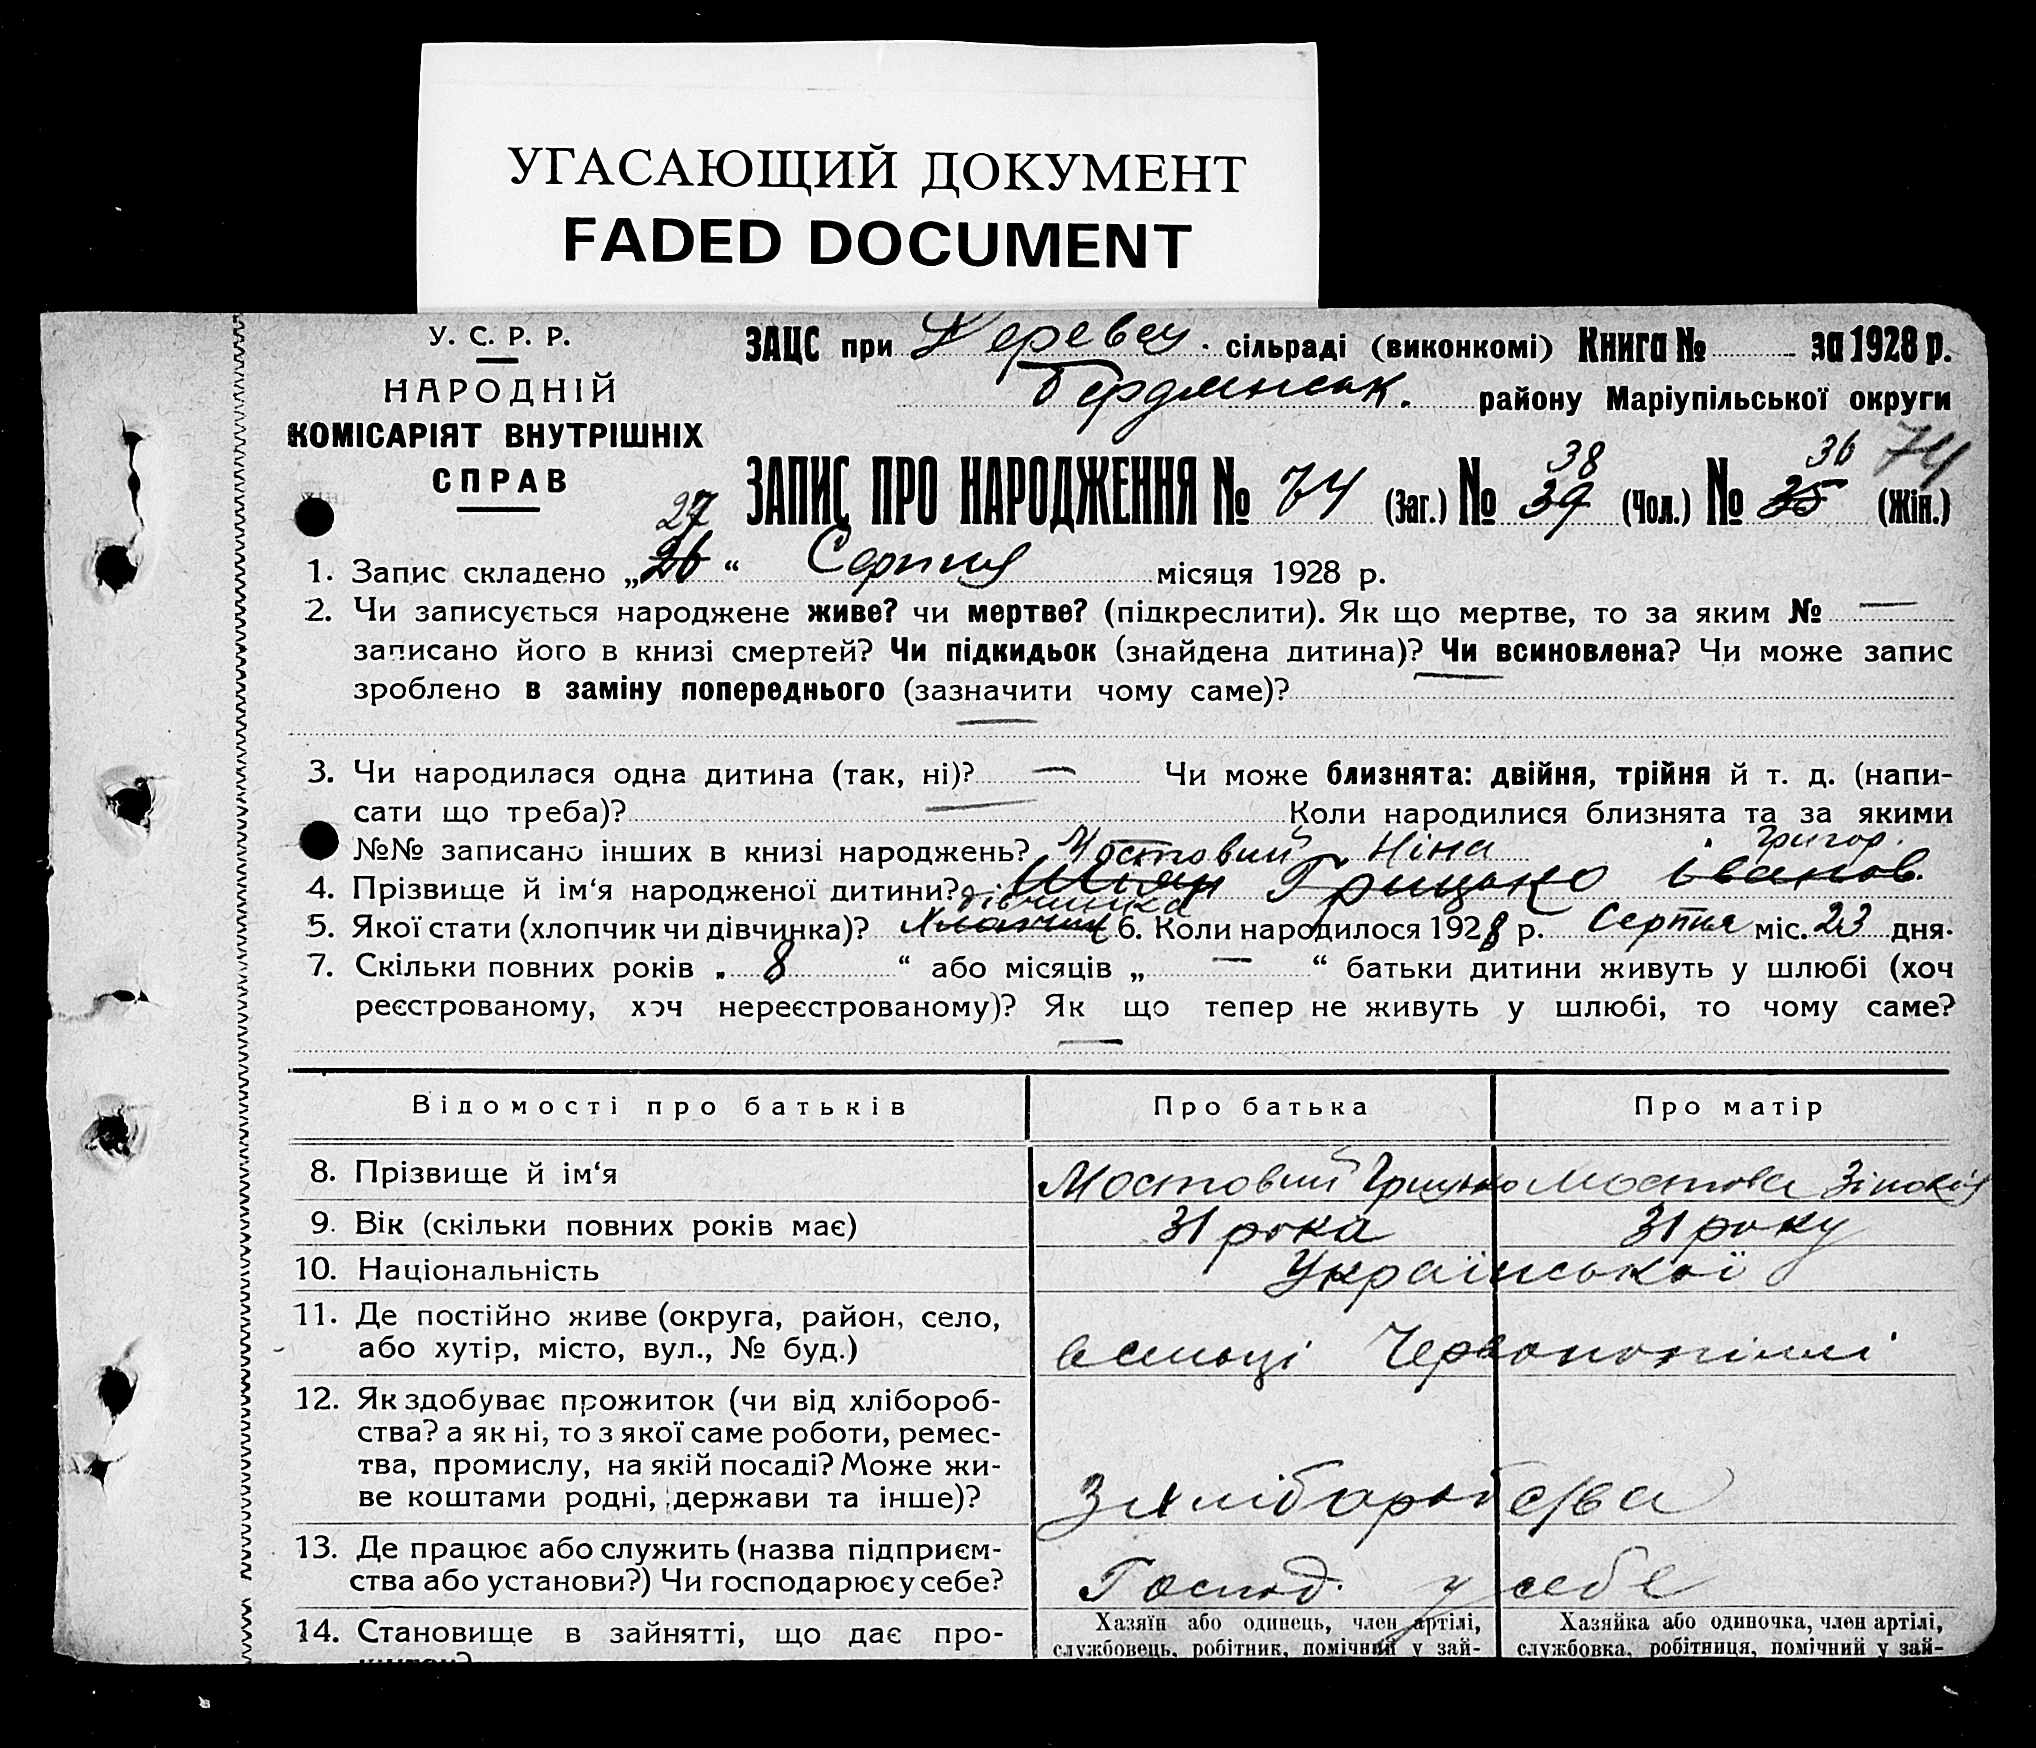 УГАСАЮЩИЙ ДОКУМЕНТ
FADED DOCUMENT
У. С. Р. Р.
НАРОДНІЙ
КОМІСАРІЯТ ВНУТРІШНІХ
СПРАВ
ЗАЦС при сільраді (виконкомі) Книга № за 1928 р.
Бердянськ. району Маріупільської округи
38 36 74
ЗАПИС ПРО НАРОДЖЕННЯ № 74 (Заг.) № 39 (Чол.) № 35 (Жін.)
27
1. Запис складено „26“ Серпня місяця 1928 р.
2. Чи записується народжене живе? чи мертве? (підкреслити). Як що мертве, то за яким № —
записано його в книзі смертей? Чи підкидьок (знайдена дитина)? Чи всиновлена? Чи може запис
зроблено в заміну попереднього (зазначити чому саме)?
—
3. Чи народилася одна дитина (так, ні)? — Чи може близнята: двійня, трійня й т. д. (напи-
сати що треба)? — Коли народилися близнята та за якими
№№ записано інших в книзі народжень?
Мостовий Ніна Григор.
4. Прізвище й ім‘я народженої дитини? Грицько іванов.
дівчинка
5. Якої стати (хлопчик чи дівчинка)? Хлопчик 6. Коли народилося 1928 р. Серпня міс. 23 дня.
7. Скільки повних років „ 8 “ або місяців „ — “ батьки дитини живуть у шлюбі (хоч
реєстрованому, хоч нереєстрованому)? Як що тепер не живуть у шлюбі, то чому саме?
—
Відомості про батьків Про батька Про матір
8. Прізвище й ім‘я Мостовий Грицько Мостова Зіновія
9. Вік (скільки повних років має) 31 рока 31 року
10. Національність Української
11. Де постійно живе (округа, район, село,
або хутір, місто, вул., № буд.)
12. Як здобуває прожиток (чи від хлібороб-
ства? а як ні, то з якої саме роботи, ремес-
тва, промислу, на якій посаді? Може жи-
ве коштами родні, держави та інше)? З хліборобства
13. Де працює або служить (назва підприєм-
ства або установи?) Чи господарює у себе? Господ. у себе
14. Становище в зайнятті, що дає про-
Хазяїн або одинець, член артілі,
службовець, робітник, помічний у зай-
Хазяйка або одиночка, член артілі,
службовка, робітниця, помічний у зай-